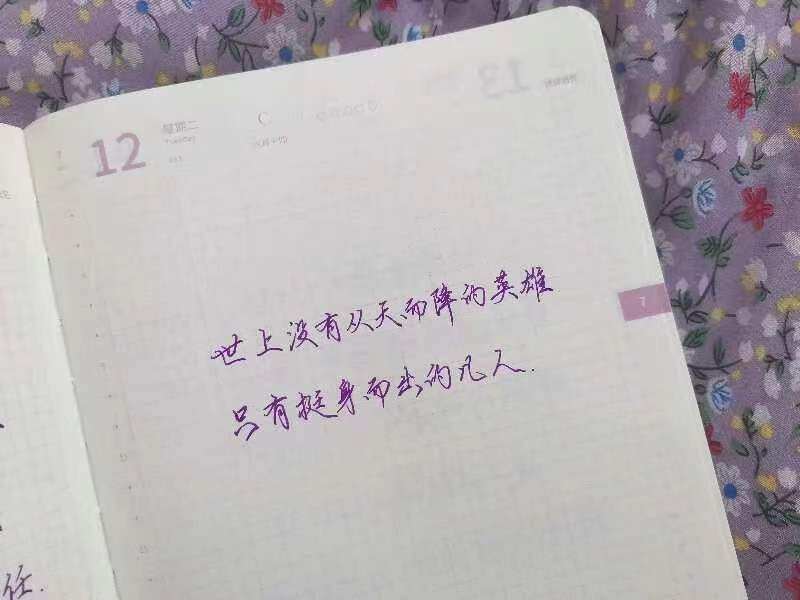 12
星期二
Tuesday
C
13
7
世上没有从天而降的英雄
只有挺身而出的凡人.
任.